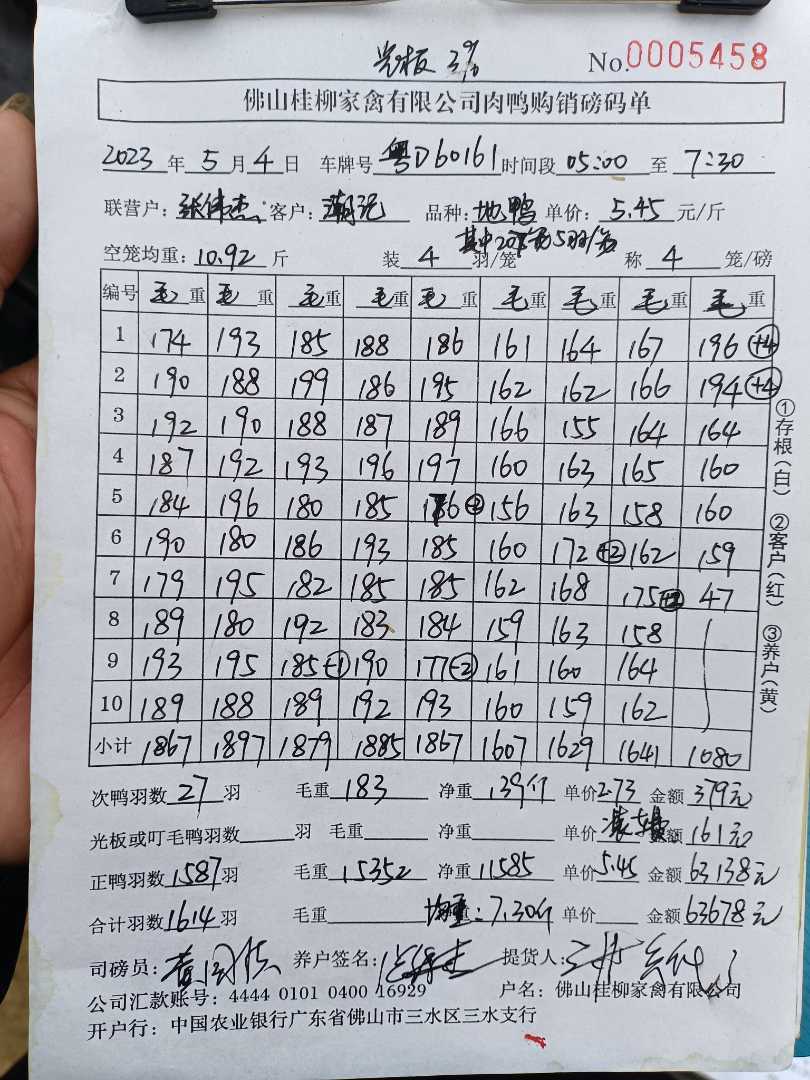 光板 3% No.0005458
佛山桂柳家禽有限公司肉鸭购销磅码单
2023 年 5 月 4 日 车牌号 粤D60161 时间段 05:00 至 7:30
联营户: 张伟杰 客户: 品种: 地鸭 单价: 5.45 元/斤
其中20笼 5羽/笼
空笼均重: 10.92 斤 装 4 羽/笼 称 4 笼/磅
编号 毛重 毛重 毛重 毛重 毛重 毛重 毛重 毛重 毛重
1 174 193 185 188 186 161 164 167 196 +4
2 190 188 199 186 195 162 162 166 194 +4
3 192 190 188 187 189 166 155 164 164
4 187 192 193 196 197 160 163 165 160
5 184 196 180 185 176 156 163 158 160
6 190 180 186 193 185 160 172 +2 162 159
7 179 195 182 185 185 162 168 175 47
8 189 180 192 183 184 159 163 158
9 193 195 185 -1 190 177 -2 161 160 164
10 189 188 189 192 193 160 159 162
小计 1867 1897 1879 1885 1867 1607 1629 1641 1080
①存根(白) ②客户(红) ③养户(黄)
次鸭羽数 27 羽 毛重 183 净重 139斤 单价 2.73 金额 379元
光板或叮毛鸭羽数 羽 毛重 净重 单价 金额 161元
正鸭羽数 1587 羽 毛重 15352 净重 11585 单价 5.45 金额 63138元
合计羽数 1614 羽 毛重 均重: 7.30斤 单价 金额 63678元
司磅员: 养户签名: 提货人:
公司汇款账号: 4444 0101 0400 16929 户名: 佛山桂柳家禽有限公司
开户行: 中国农业银行广东省佛山市三水区三水支行